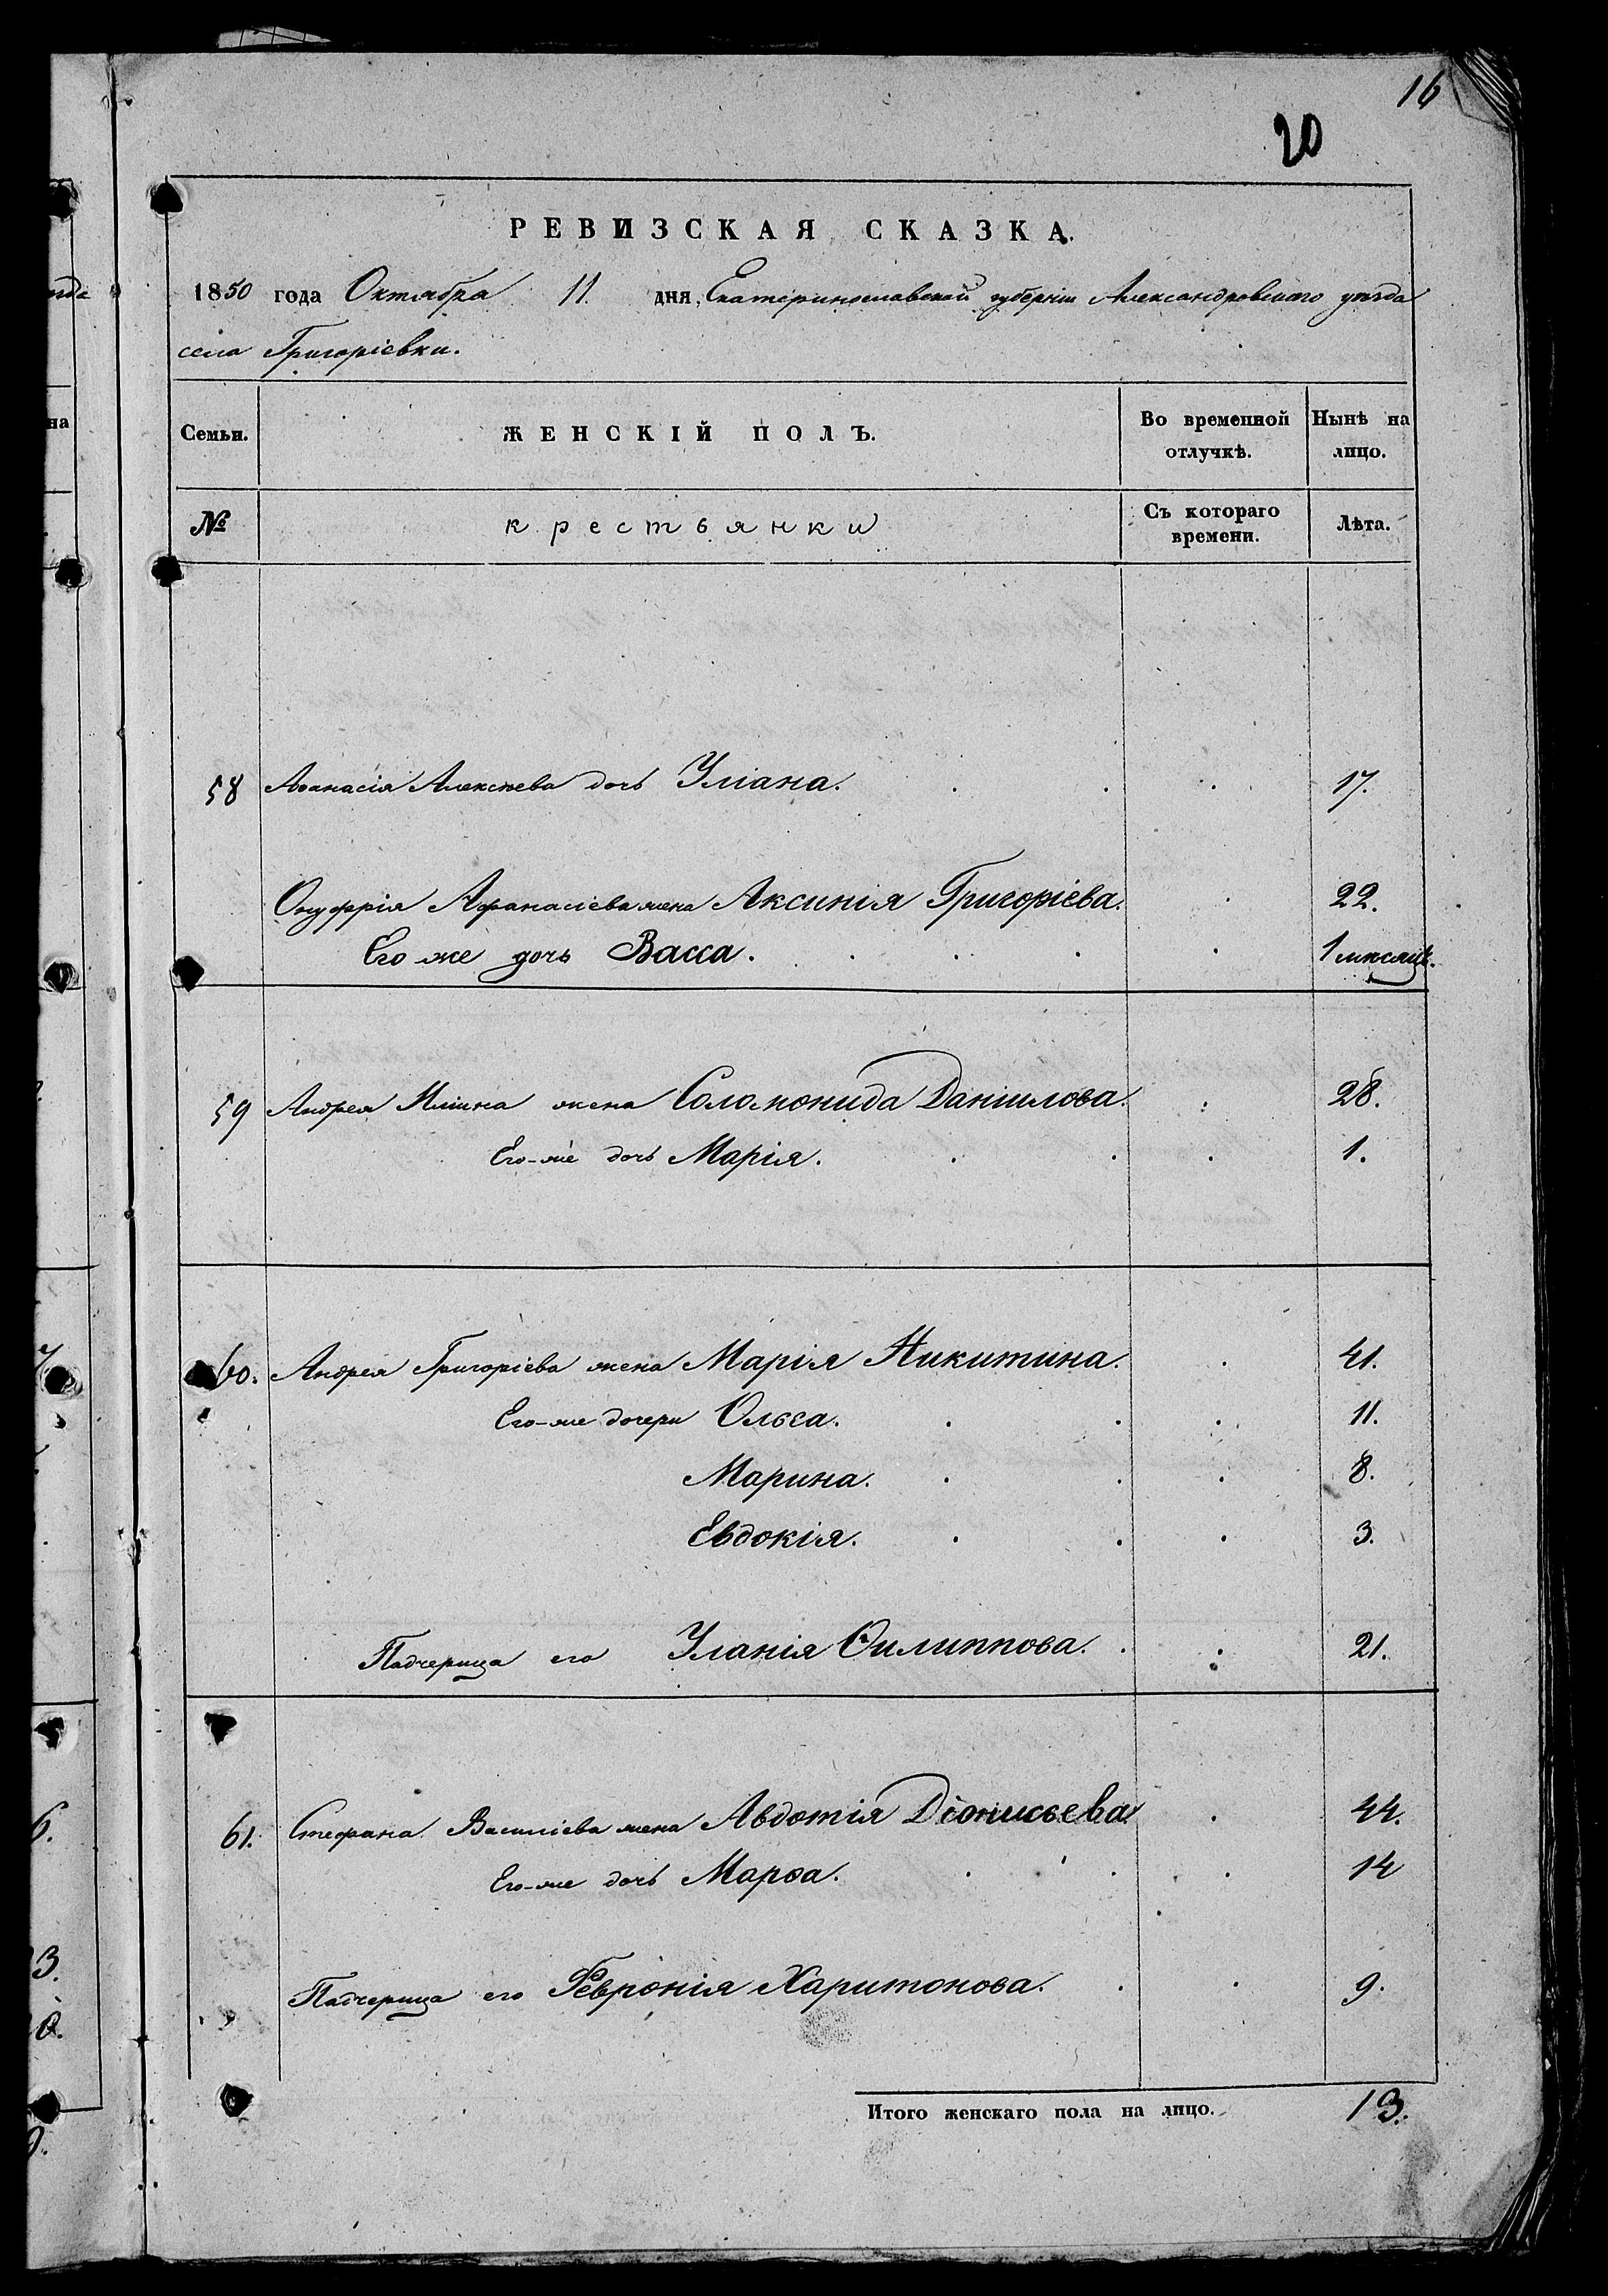 16
20
РЕВИЗСКАЯ СКАЗКА.
1850 года Октября 11 дня, Екатеринославской губерніи Александровскаго уѣзда
села Григоріевки.
Семьи. ЖЕНСКІЙ ПОЛЪ. Во временной отлучкѣ. Нынѣ на лицо.
№ крестьянки Съ котораго времени. Лѣта.
58 Аѳанасія Алексѣева дочь Уліана. 17.
Онуфрія Афанасіева жена Аксинія Григоріева. 22.
Его же дочь Васса. 1 мѣсяцъ.
59 Андрея Иліина жена Соломонида Даніилова. 28.
Его-же дочь Марія. 1.
60. Андрея Григоріева жена Марія Никитина. 41.
Его-же дочери Ольга. 11.
Марина. 8.
Евдокія. 3.
Падчерица его Уланія Филиппова. 21.
61. Стефана Василіева жена Авдотія Діонисьева. 44.
Его-же дочь Марѳа. 14
Падчерица его Февронія Харитонова. 9.
Итого женскаго пола на лицо. 13.